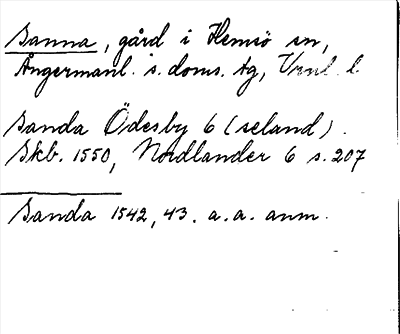 Sanna, gård i Hemsö sn,
Ångermanl. s. doms. tg, Vrnl. l.
Sanda Ödesby 6 (seland).
Skb. 1550, Nordlander 6 s. 207
Sanda 1542, 43. a. a. anm.